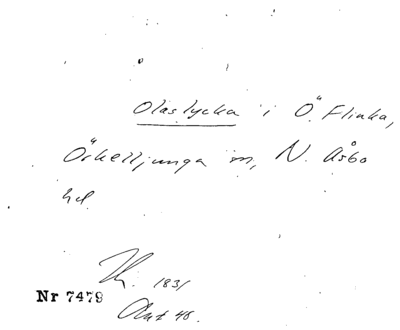 Olaslycka i Ö. Flinka,
Örkelljunga sn, N. Åsbo
hd
1831
Nr 7479
Akt 48.